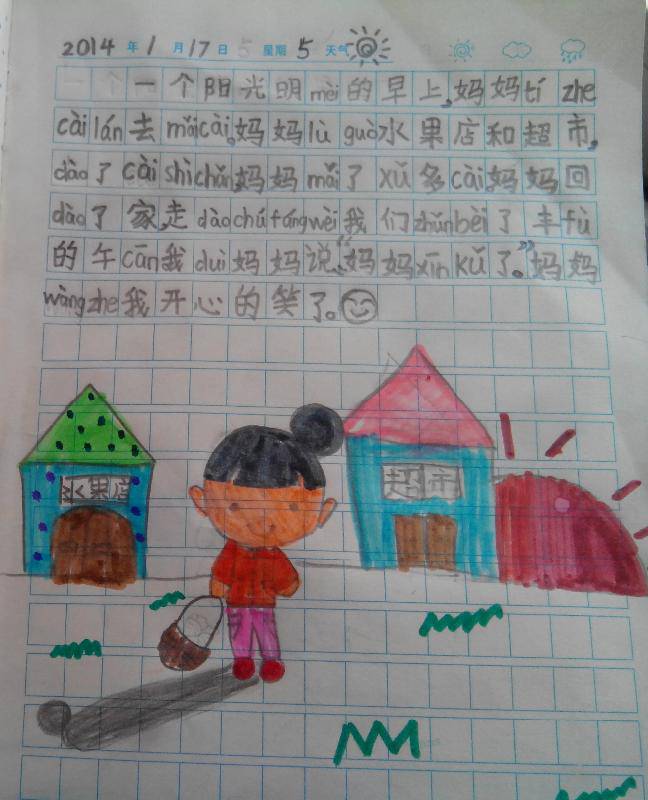 2014 年 1 月 17 日 星期 5 天气
一个阳光明mèi的早上,妈妈tí zhe
cài lán去mǎi cài。妈妈lù guò水果店和超市,
dào了cài shì chǎng,妈妈mǎi了xǔ多cài,妈妈回
dào了家,走dào chú fáng wèi我们zhǔn bèi了丰fù
的午cān我duì妈妈说:“妈妈xīn kǔ了。”妈妈
wàng zhe我开心的笑了。
水果店
超市